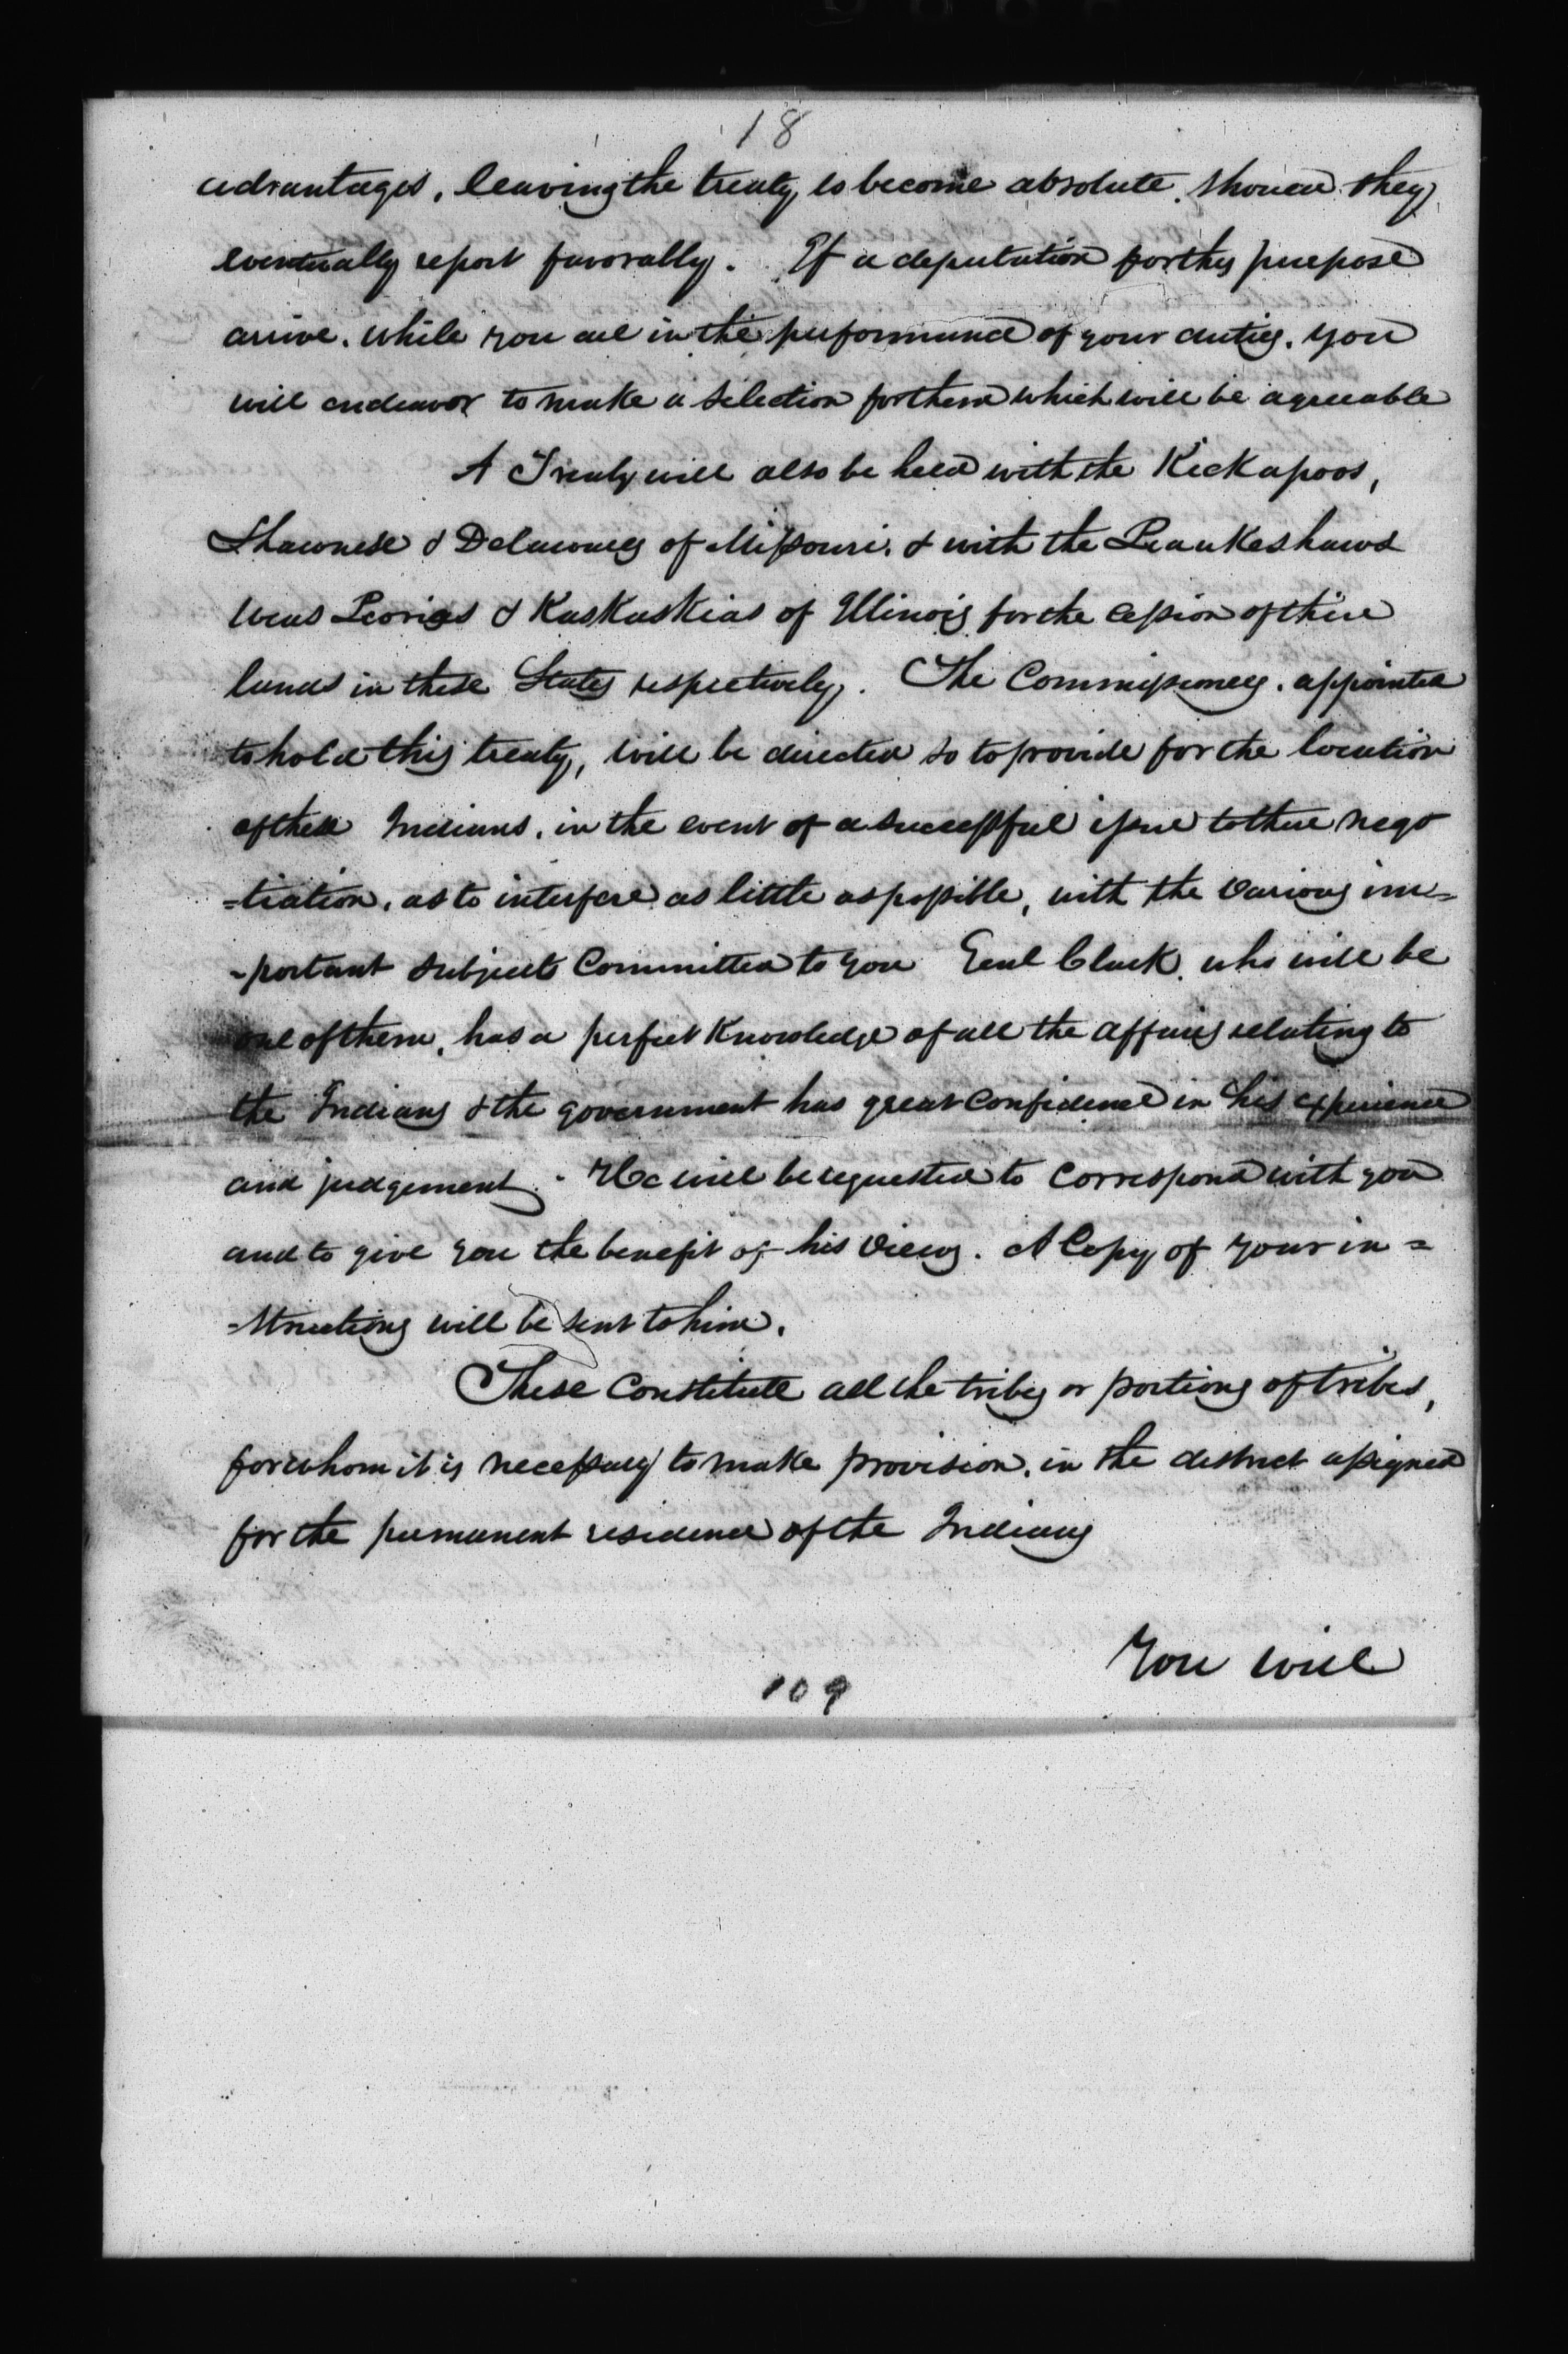 18
advantages, leaving the treaty to become absolute, should they
eventually report favorably. If a deputation for this purpose
arrive, while you are in the performance of your duties, you
will endeavor to make a selection for them which will be agreeable
A Treaty will also be held with the Kickapoos,
Shawnese & Delawares of Missouri, & with the Peankeshaws
Weas Peorias & Kaskaskias of Illinois for the cession of their
lands in these States respectively. The Commissioners, appointed
to hold this treaty, will be directed so to provide for the location
of these Indians, in the event of a successful issue to their nego
=tiation, as to interfere as little as possible, with the various im=
-portant subjects Committed to you Genl Clark, who will be
one of them, has a perfect Knowledge of all the affairs relating to
the Indians & the government has great Confidence in his experience
and judgement. He will be requested to Correspond with you
and to give you the benefit of his views. A Copy of your in=
=structions will be sent to him.
These Constitute all the tribes or portions of tribes,
for whom it is necessary to make provision, in the district assigned
for the permanent residence of the Indians
You will
109